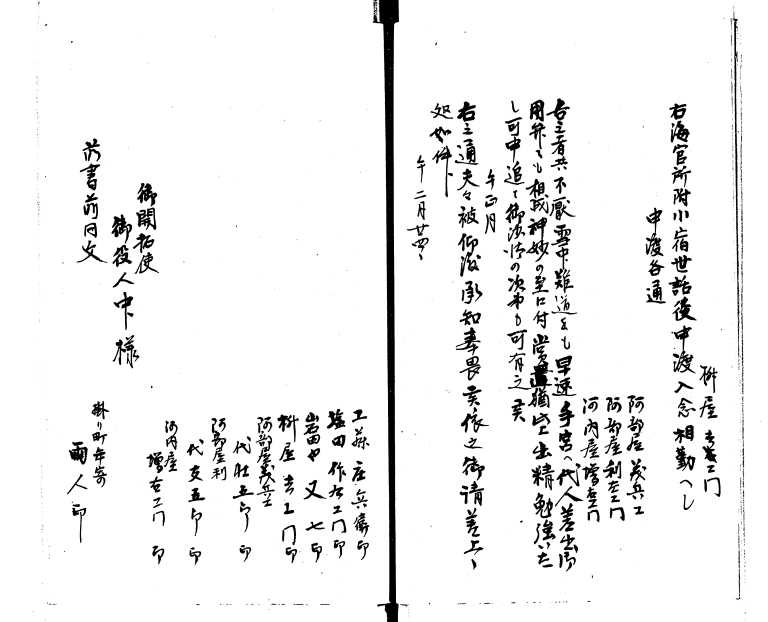 桝屋吉左エ門
右海官所附小宿世話役申渡入念相勤へし
申渡各通
阿部屋茂兵エ
阿部屋利左エ門
河内屋増右エ門
右之者共不厭雪中難道をも早速手宮へ代人差出御
用弁ニも相成神妙の至ニ付尚此上出精勉強いた
し可申追て御沙汰の次第も可有之事
午正月
右之通夫々被仰渡承知奉畏候依之御請差上候
処如件
午二月廿四日
工藤庄兵衛印
塩田作右エ門印
岩田や又七印
桝屋吉エ門印
阿部屋茂兵エ
代壮五郎印
阿部屋利
代支五郎印
河内屋
増右エ門印
掛り町年寄
両人印
御開拓使
御役人中様
前書前同文